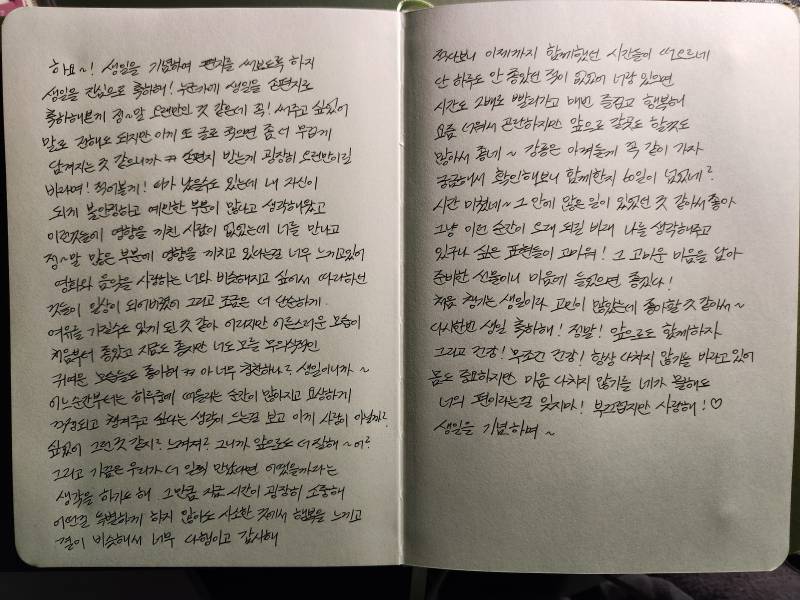 하요~! 생일을 기념하여 편지를 써보도록 하지
생일을 진심으로 축하해! 누군가에 생일을 손편지로
축하해본게 정~말 오랜만인 것 같은데 꼭! 써주고 싶었어
말로 전해도 되지만 이게 또 글로 적으면 좀 더 무겁게
담겨지는 것 같으니까 ㅋㅋ 손편지 받는게 굉장히 오랜만이길
바라며! 적어볼게! 너가 낯설수도 있는데 내 자신이
되게 불안정하고 예민한 부분이 많다고 생각해왔고
이런것들에 영향을 끼친 사람이 없었는데 너를 만나고
정~말 많은 부분에 영향을 끼치고 있다는걸 너무 느끼고있어
영화와 음악을 사랑하는 너와 비슷해지고 싶어서 따라하던
것들이 일상이 되어버렸어 그리고 조금은 더 단순하게
여유를 가질수도 있게 된 것 같아 이러지만 어른스러운 모습이
처음부터 좋았고 지금도 좋지만 너도 모를 무의식적인
귀여운 모습들도 좋아해 ㅋㅋ 아 너무 칭찬하나? 생일이니까~
어느순간부터는 하루중에 떠올리는 순간이 많아지고 요상하게
걱정되고 챙겨주고 싶다는 생각이 드는걸 보고 이게 사랑이 아닐까?
싶었어 그런것 같지? 느껴져? 그니까 앞으로도 더 잘해~ 어?
그리고 가끔은 우리가 더 일찍 만났다면 어땠을까라는
생각을 하기도 해 그만큼 지금 시간이 굉장히 소중해
어떤걸 특별하게 하지 않아도 사소한 것에서 행복을 느끼고
결이 비슷해서 너무 다행이고 감사해
적다보니 이제까지 함께했던 시간들이 떠오르네
난 하루도 안 좋았던 적이 없었어 너랑 있으면
시간도 2배로 빨리가고 매번 즐겁고 행복해
요즘 더워서 곤란하지만 앞으로 갈곳도 할것도
많아서 좋네~ 강릉은 아껴둘게 꼭 같이 가자
궁금해서 확인해보니 함께한지 60일이 넘었네?
시간 미쳤네~ 그 안에 많은 일이 있었던 것 같아서 좋아
그냥 이런 순간이 오래 되길 바래 나를 생각해주고
있구나 싶은 표현들이 고마워! 그 고마운 마음을 담아
준비한 선물이니 마음에 들었으면 좋겠다!
처음 챙기는 생일이라 고민이 많았는데 좋아할 것 같아서~
다시한번 생일 축하해! 정말! 앞으로도 함께하자
그리고 건강! 무조건 건강! 항상 다치지 않기를 바라고 있어
몸도 중요하지만 마음 다치지 않기를 네가 뭘해도
너의 편이라는걸 잊지마! 부끄럽지만 사랑해! ♡
생일을 기념하며~